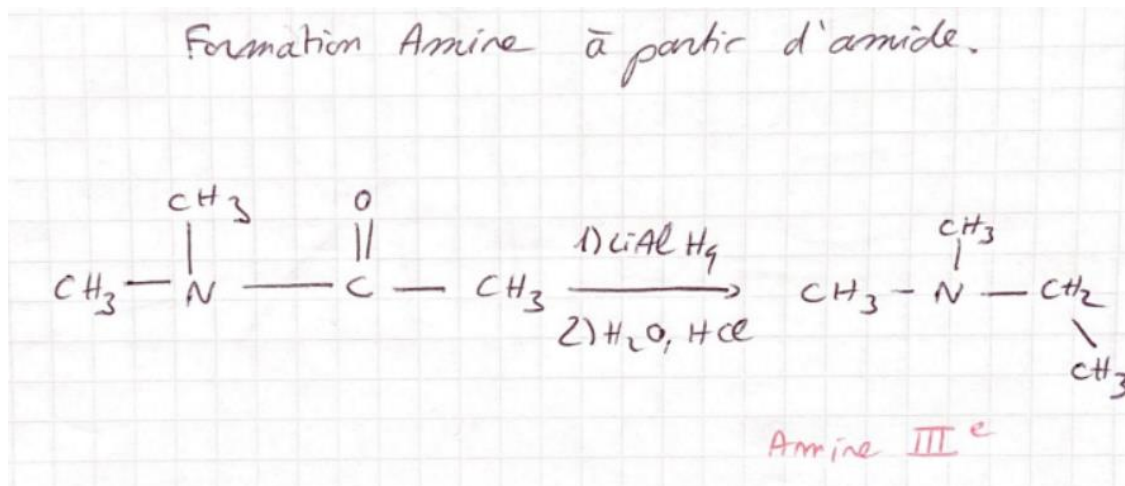 Formation Amine à partir d'amide.
CH3 O
CH3 — N — C — CH3
1) LiAlH4
2) H2O, HCl
CH3
CH3 - N — CH2
CH3
Amine IIIe